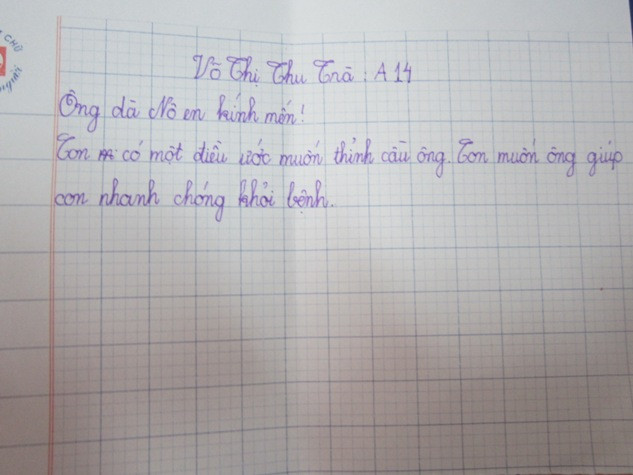 CHỮ
Võ Thị Thu Trà : A14
Ông dà Nô en kính mến!
Con có một điều ước muốn thỉnh cầu ông. Con muốn ông giúp
con nhanh chóng khỏi bệnh.